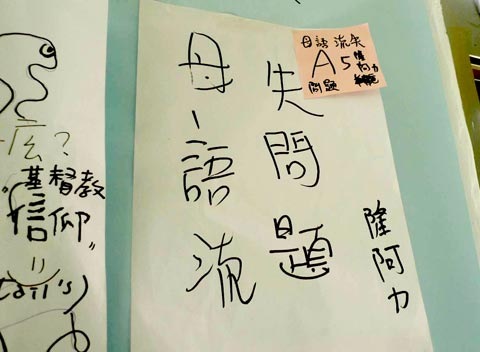 么?
“基督教
信仰”
母語流
失問題
隆阿力
母語流失
A5
問題
隆阿力